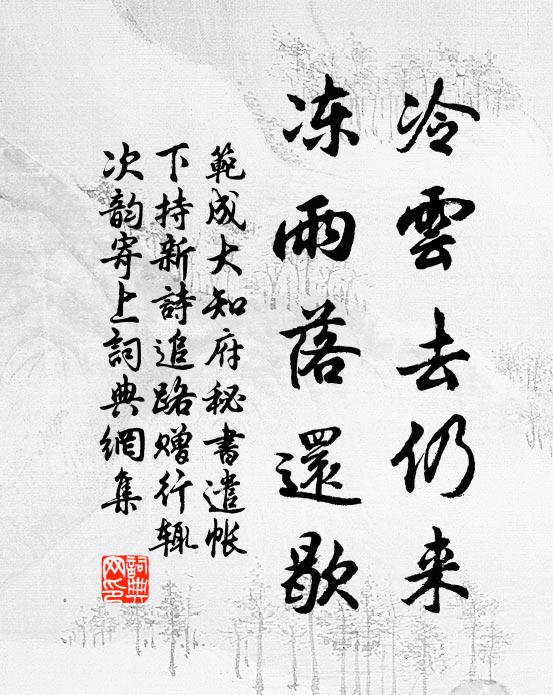 冷雲去仍来
冻雨落還歇
範成大知府秘書遣帐
下持新詩追路赠行辄
次韵寄上詞典網集
詞典网印